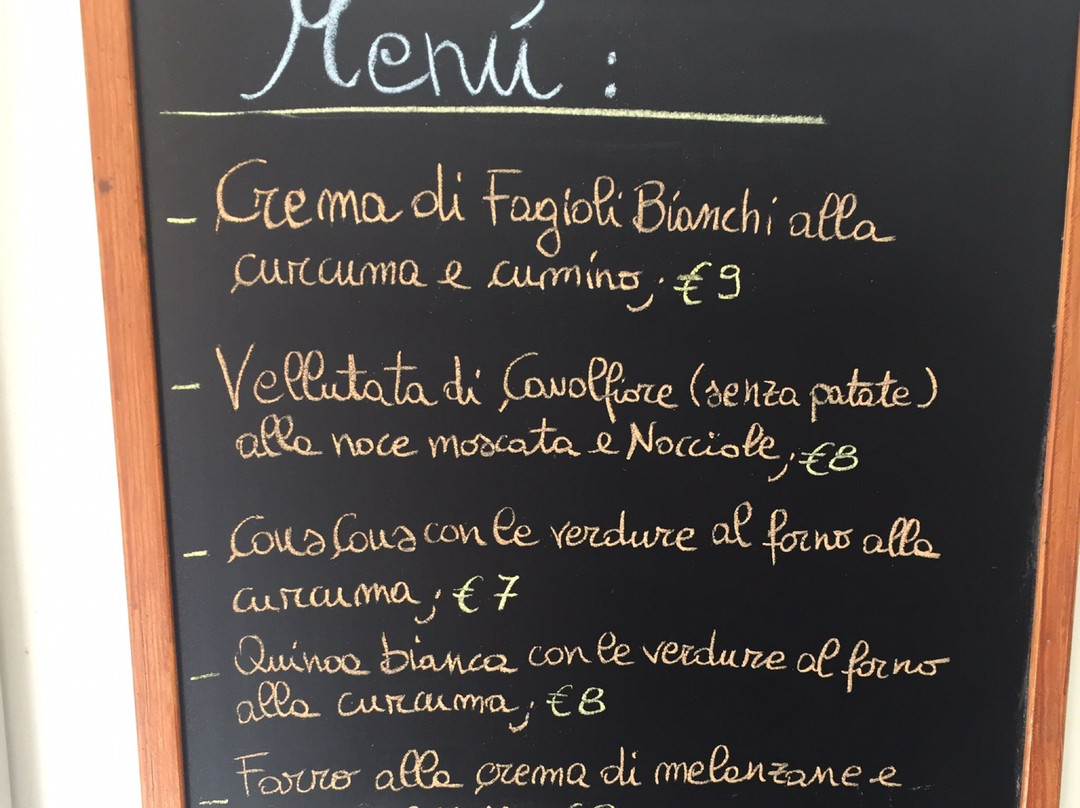 Menú:
- Crema di Fagioli Bianchi alla
curcuma e cumino; €9
- Vellutata di Cavolfiore (senza patate)
alla noce moscata e Nocciole; €8
- Cous Cous con le verdure al forno alla
curcuma; €7
- Quinoa bianca con le verdure al forno
alla curcuma; €8
- Farro alla crema di melanzane e